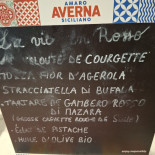 AMARO
AVERNA
SICILIANO
La vie en Romo
VELOUTÉ DE COURGETTE
MOZZA FIOR D'AGEROLA
STRACCIATELLA DI BUFALA
-TARTARE DE GAMBERO ROSSO
DI MAZARA
(GROSSE CREVETTE ROUGE DE Sicile)
- ÉCLAT DE PISTACHE
- HUILE D'OLIVE BIO